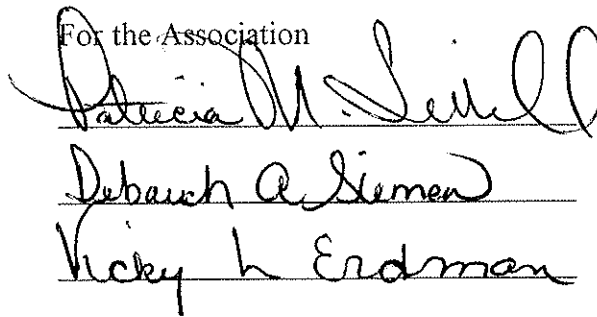 For the Association
Patricia M.
Deborah A Siemen
Vicky L Erdman